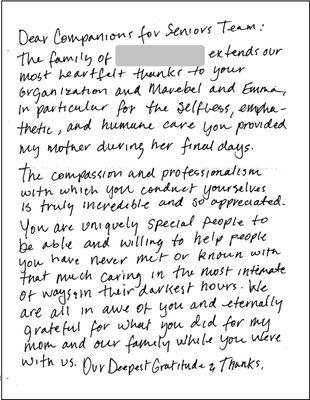 Dear Companions for Seniors Team:
The family of extends our
most heartfelt thanks to your
organization and Marebel and Emma,
in particular for the selfless, empha-
thetic, and humane care you provided
my mother during her final days.
The compassion and professionalism
with which you conduct yourselves
is truly incredible and so appreciated.
You are uniquely special people to
be able and willing to help people
you have never met or known with
that much caring in the most intimate
of ways, in their darkest hours. We
are all in awe of you and eternally
grateful for what you did for my
mom and our family while you were
with us. Our Deepest Gratitude & Thanks,